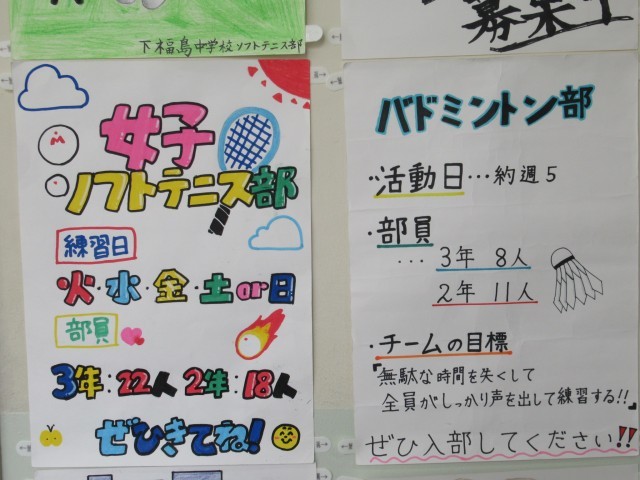 下福島中学校ソフトテニス部
募集!
女子
ソフトテニス部
練習日
火・水・金・土or日
部員
3年:22人 2年:18人
ぜひきてね!
バドミントン部
・活動日…約週5
・部員
… 3年 8人
2年 11人
・チームの目標
『無駄な時間を失くして
全員がしっかり声を出して練習する!!』
ぜひ入部してください!!